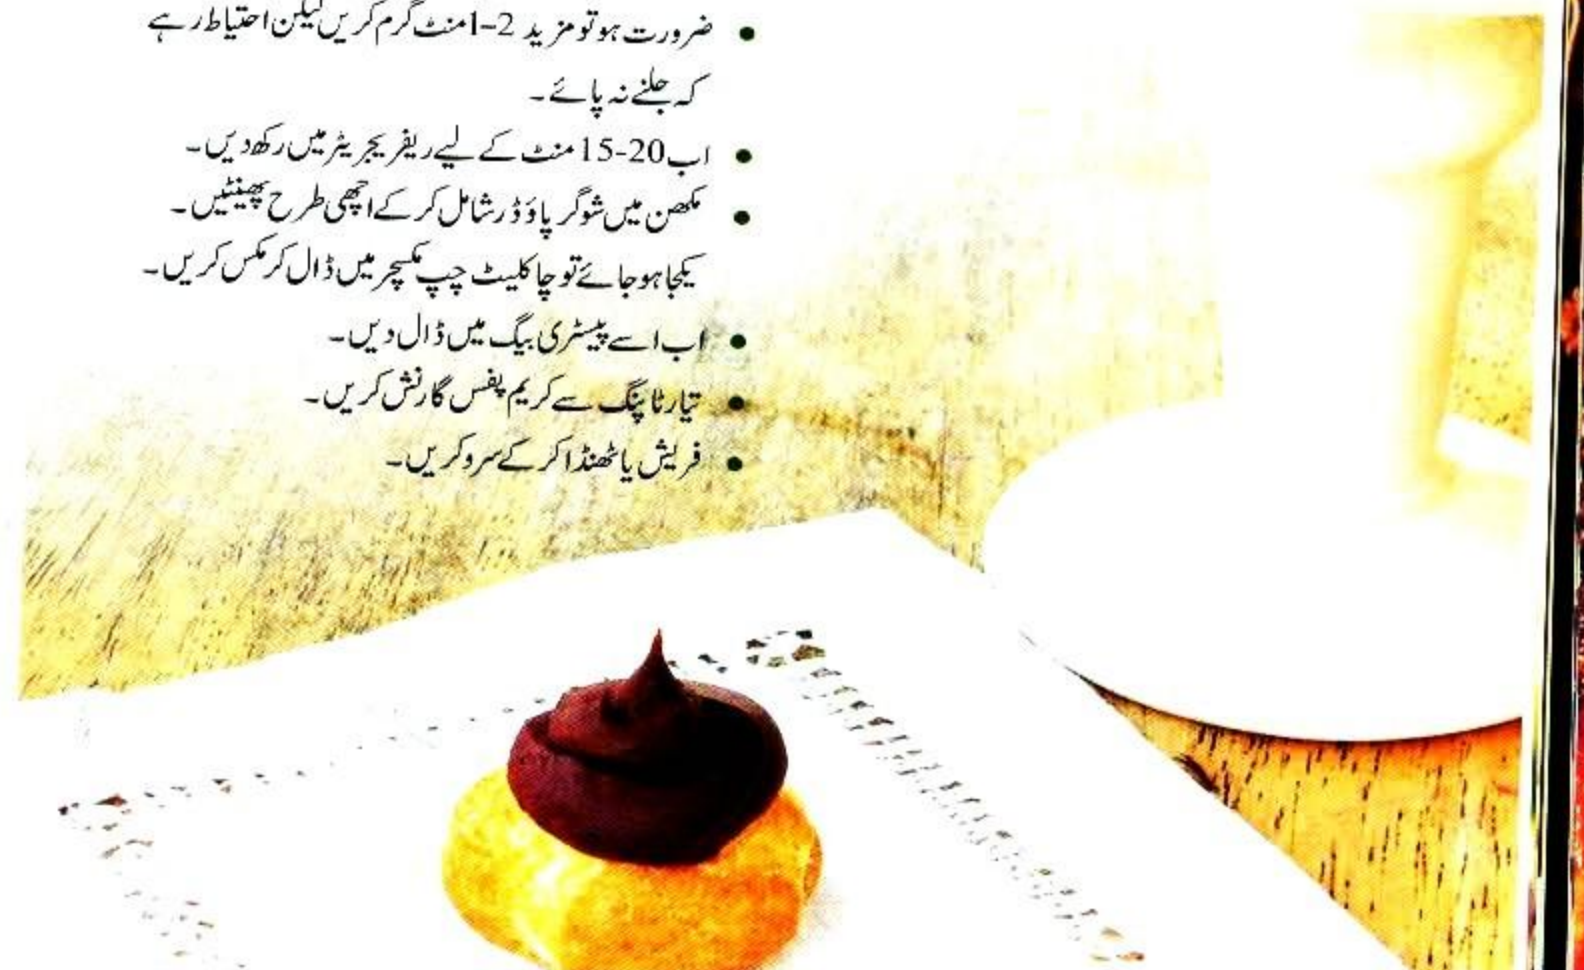 ضرورت ہو تو مزید 2-1 منٹ گرم کریں لیکن احتیاط رہے
کہ جلنے نہ پائے۔
اب 20-15 منٹ کے لیے ریفریجریٹر میں رکھ دیں۔
مکھن میں شوگر پاؤڈر شامل کر کے اچھی طرح پھینٹیں۔
یکجا ہو جائے تو چاکلیٹ چپ مکسچر میں ڈال کر مکس کریں۔
اب اسے پیسٹری بیگ میں ڈال دیں۔
تیار ٹاپنگ سے کریم پفس گارنش کریں۔
فریش یا ٹھنڈا کر کے سرو کریں۔